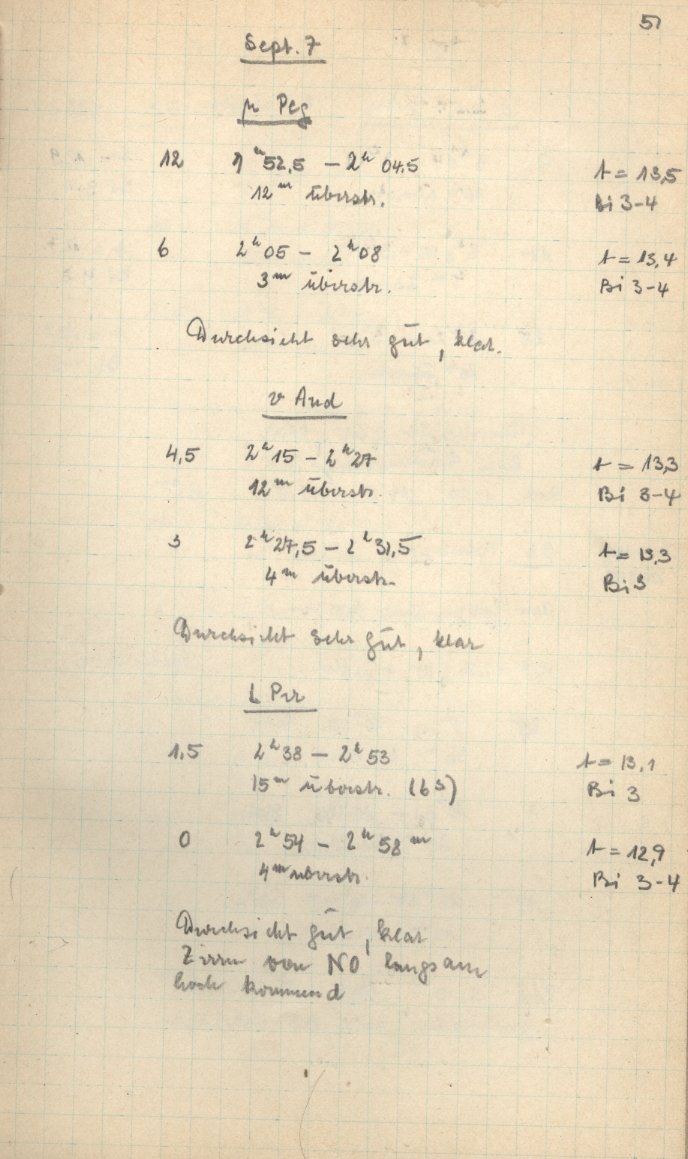 51
Sept. 7
μ Peg
12 1ʰ52,5 – 2ʰ 04,5 t = 13,5
12ᵐ überstr. Bi 3-4
6 2ʰ05 – 2ʰ08 t = 13,4
3ᵐ überstr. Bi 3-4
Durchsicht sehr gut, klar.
υ And
4,5 2ʰ15 – 2ʰ27 t = 13,3
12ᵐ überstr. Bi 3-4
3 2ʰ27,5 – 2ʰ31,5 t = 13,3
4ᵐ überstr. Bi 3
Durchsicht sehr gut, klar
Per
1,5 2ʰ38 – 2ʰ53 t = 13,1
15ᵐ überstr. Bi 3
0 2ʰ54 – 2ʰ58ᵐ t = 12,9
4ᵐ überstr. Bi 3-4
Durchsicht gut, klar
Zirren von NO langsam
hoch kommend